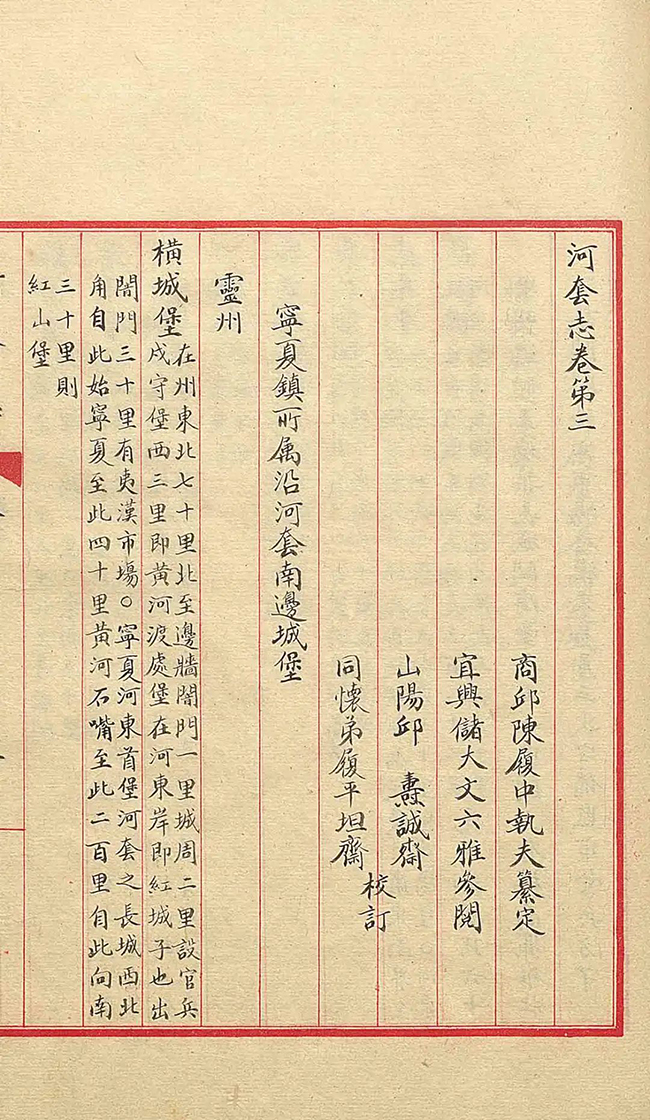 河套志卷第三
商邱陳履中執夫纂定
宜興儲大文六雅參閱
山陽邱 燾誠齋
同懷弟履平坦齋
校訂
寧夏鎮所属沿河套南邊城堡
靈州
橫城堡
在州東北七十里北至邊牆闇門一里城周二里設官兵
戍守堡西三里即黃河渡處堡在河東岸即紅城子也出
闇門三十里有夷漢市場○寧夏河東首堡河套之長城西北
角自此始寧夏至此四十里黃河石嘴至此二百里自此向南
三十里則
紅山堡